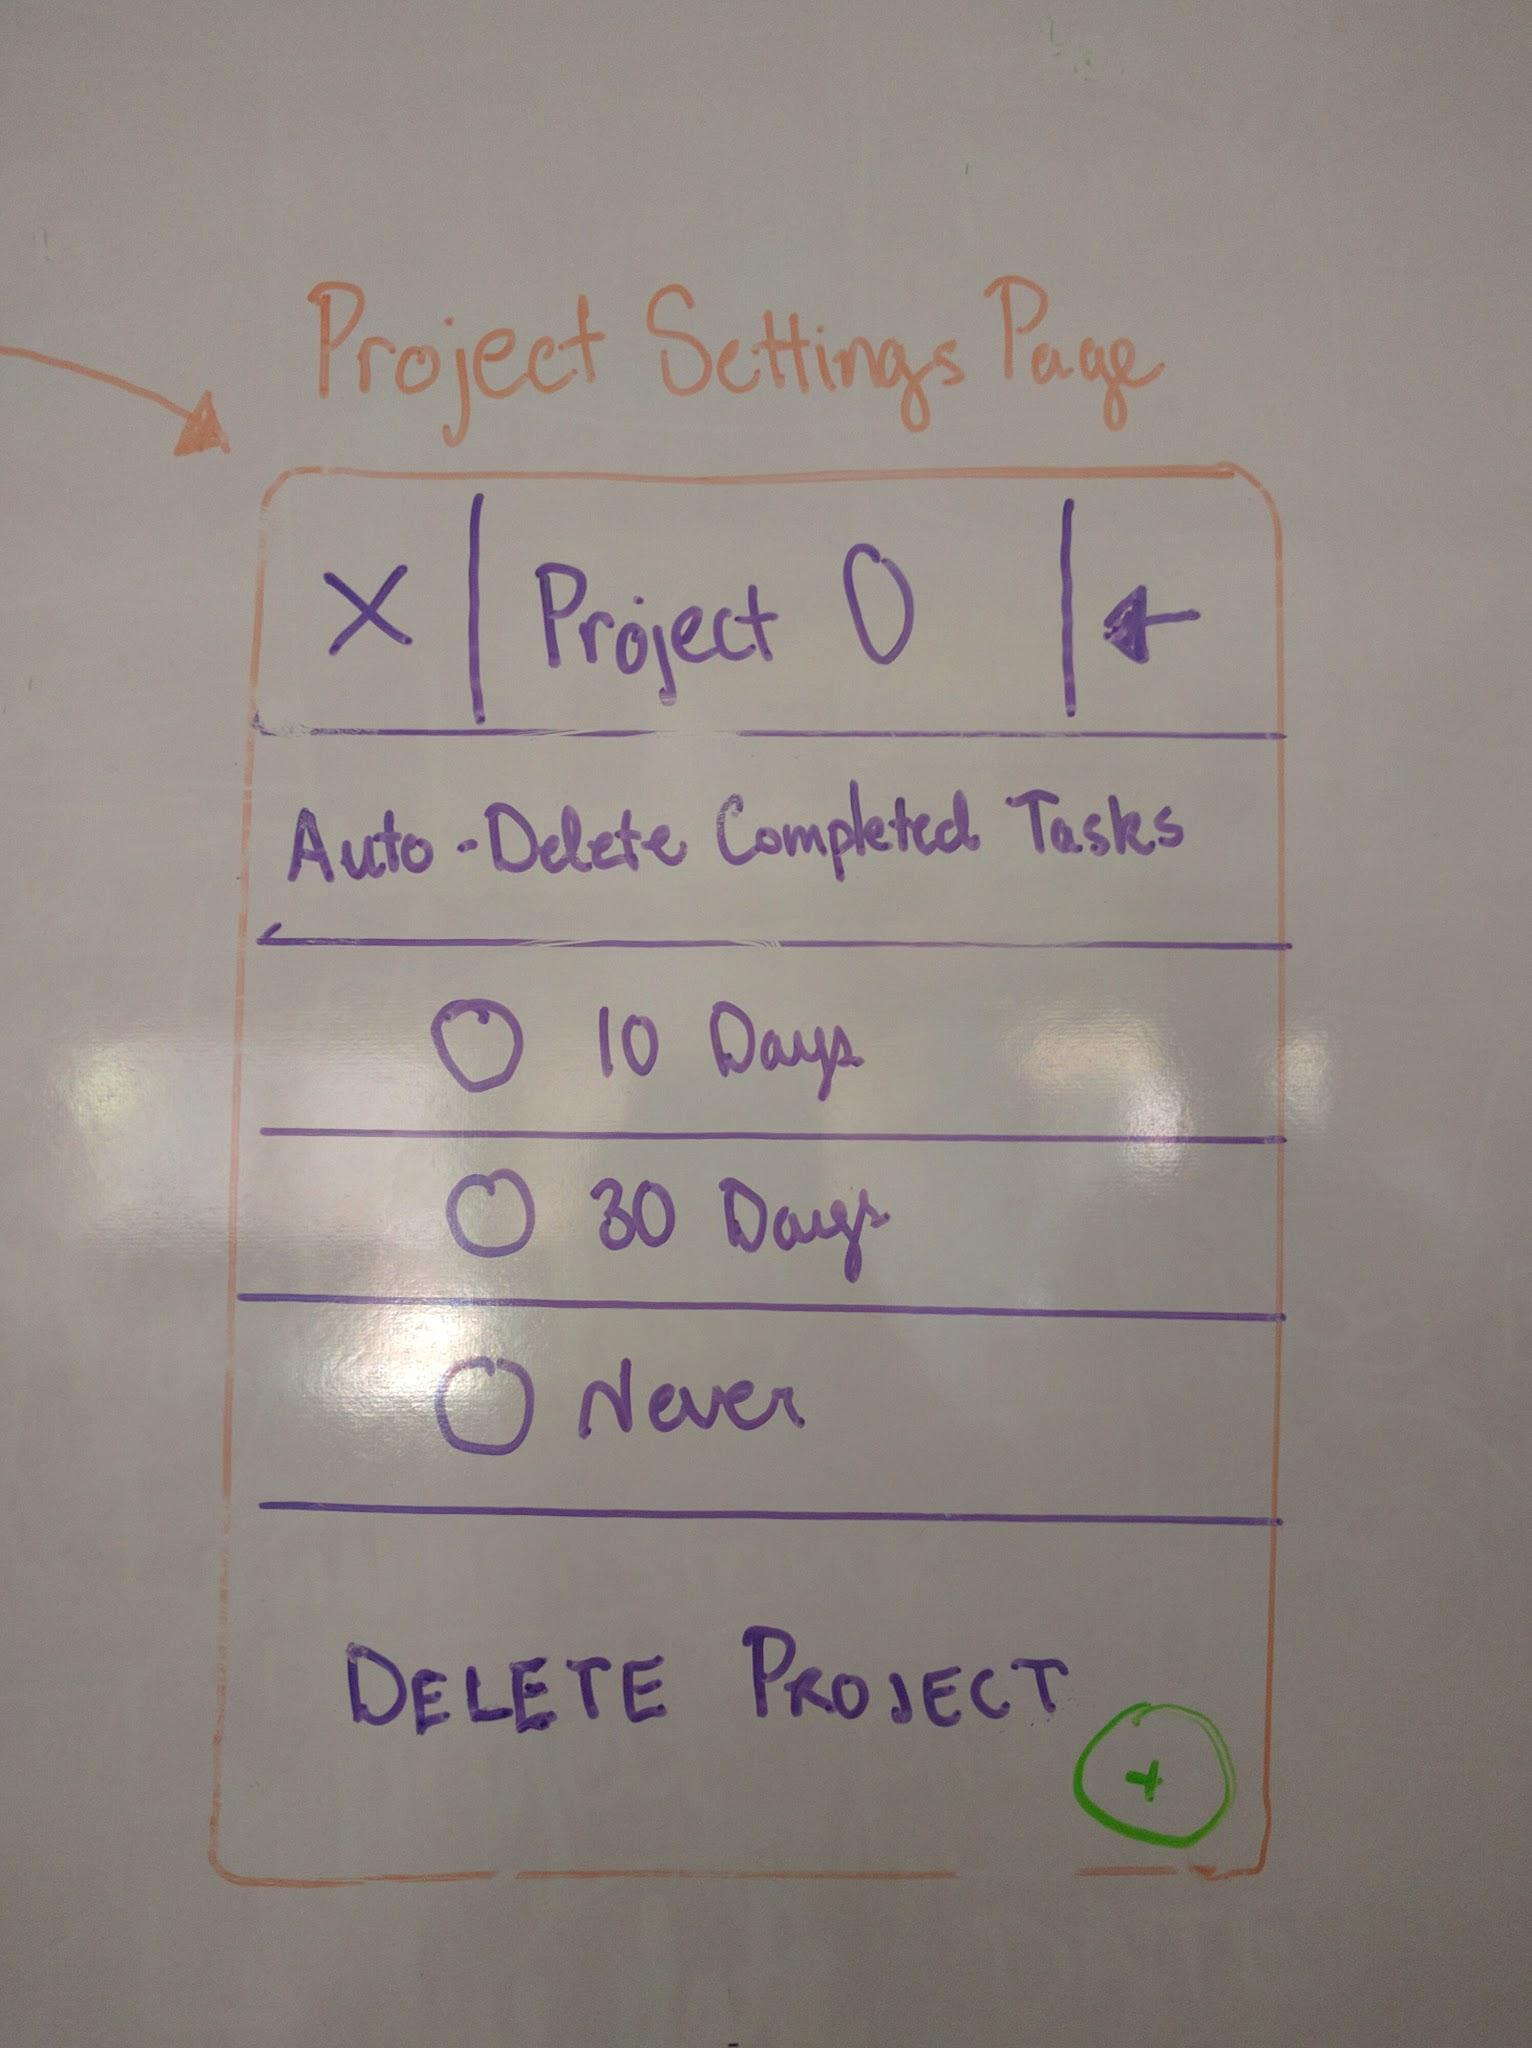 Project Settings Page
X | Project 0 |
Auto-Delete Completed Tasks
10 Days
30 Days
Never
DELETE PROJECT
+